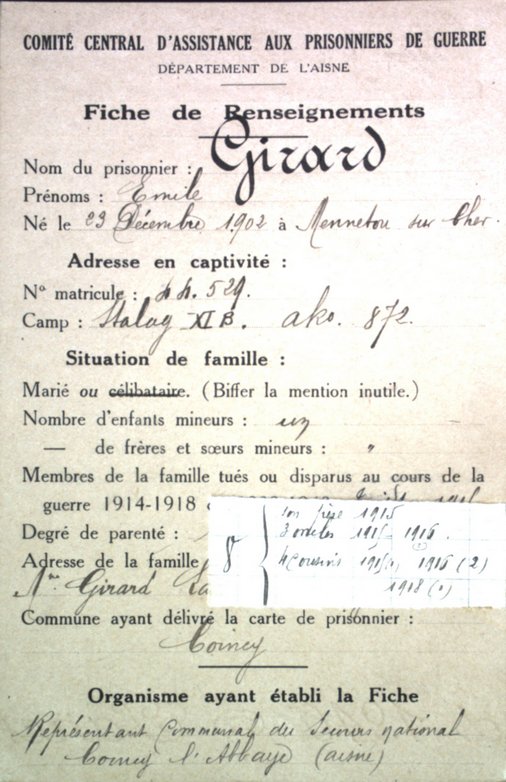 COMITÉ CENTRAL D'ASSISTANCE AUX PRISONNIERS DE GUERRE
DÉPARTEMENT DE L'AISNE
Fiche de Renseignements
Nom du prisonnier : Girard
Prénoms : Emile
Né le 23 Décembre 1902 à Mennetou sur Cher.
Adresse en captivité :
N° matricule : 44.529.
Camp : Stalag XI B. ako. 872.
Situation de famille :
Marié ou célibataire. (Biffer la mention inutile.)
Nombre d'enfants mineurs : un
— de frères et sœurs mineurs : "
Membres de la famille tués ou disparus au cours de la
guerre 1914-1918
Degré de parenté :
Adresse de la famille
Mme Girard
8 { 1 on père 1915
3 oncles 1915 1916.
4 Cousins 1915(1) 1916(2)
1918(1)
Commune ayant délivré la carte de prisonnier :
Coincy
Organisme ayant établi la Fiche
Représentant Communal du Secours national
Coincy l'Abbaye (aisne)